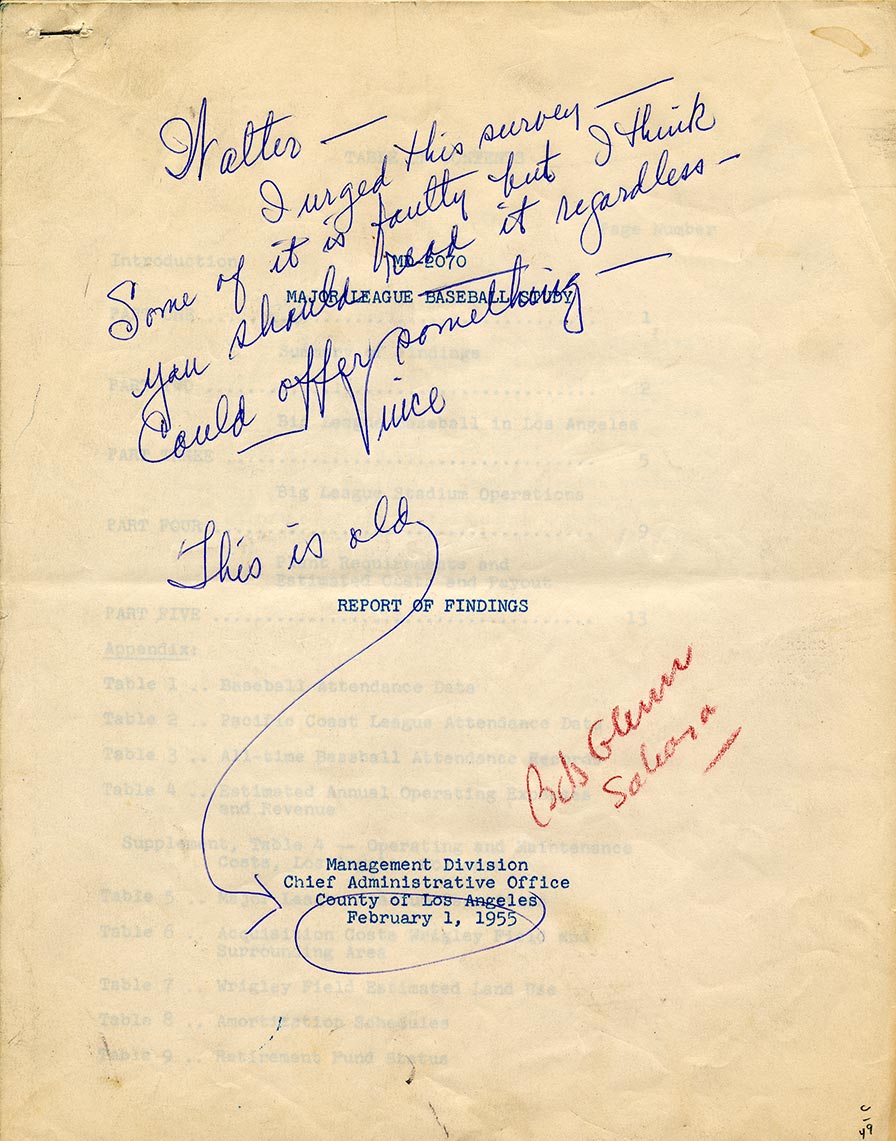 Walter —
I urged this survey —
Some of it is faulty but I think
you should read it regardless —
Could offer something —
Vince
MD-2070
MAJOR LEAGUE BASEBALL STUDY
This is old
REPORT OF FINDINGS
Bob Glenn
Management Division
Chief Administrative Office
County of Los Angeles
February 1, 1955
TABLE OF CONTENTS
Page Number
Introduction
1
Summary of Findings
PART TWO .......... 2
Big League Baseball in Los Angeles
PART THREE .......... 5
Big League Stadium Operations
PART FOUR .......... 9
Requirements and
Estimated Costs and Payout
PART FIVE .......... 13
Appendix:
Table 1 .. Baseball Attendance Data
Table 2 .. Pacific Coast League Attendance Data
Table 3 .. All-time Baseball Attendance Records
Table 4 .. Estimated Annual Operating Expense
and Revenue
Supplement, Table 4 -- Operating and Maintenance
Costs, Los
Table 5 .. Major League
Table 6 .. Acquisition Costs Wrigley Field and
Surrounding Area
Table 7 .. Wrigley Field Estimated Land Use
Table 8 .. Amortization Schedules
Table 9 .. Retirement Fund Status
C-49